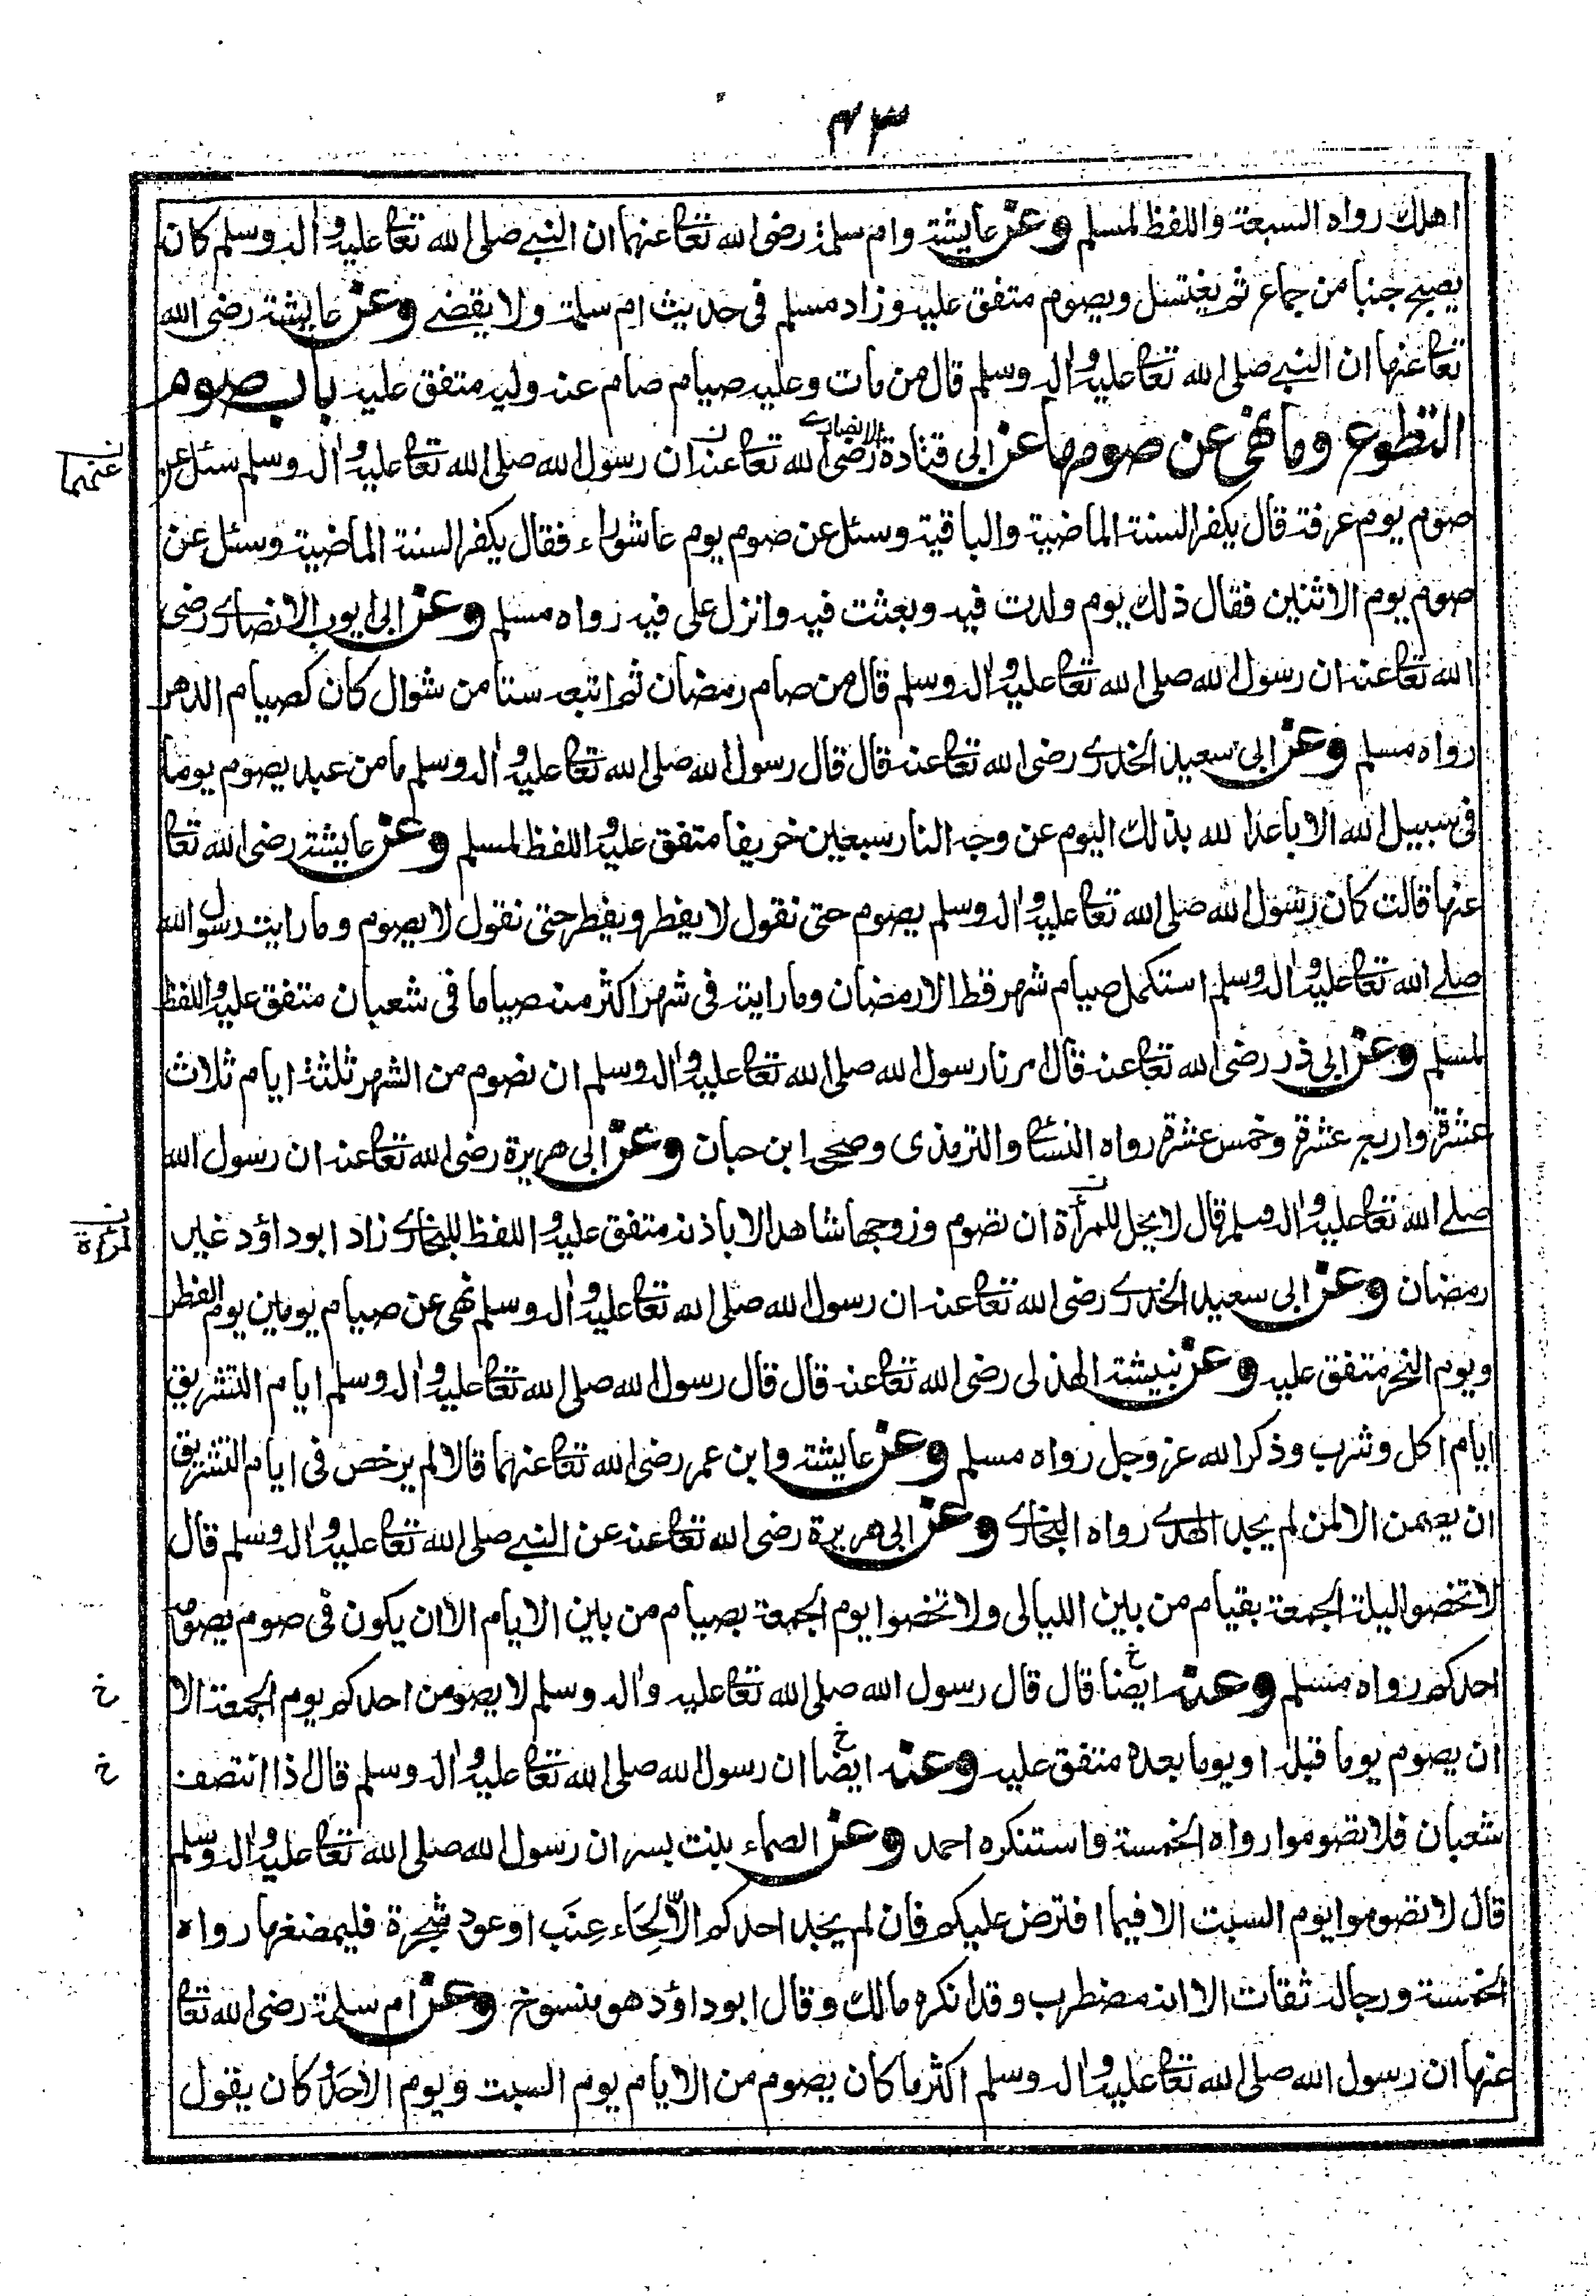 ٤٣
اهلك رواه السبعة واللفظ لمسلم وعن عايشة وام سلمة رضى الله تعا عنهما ان النبے صلى الله تعا عليه واٰله وسلم كان
يصبح جنبا من جماع ثم يغتسل ويصوم متفق عليه وزاد مسلم فى حديث ام سلمة ولا يقضے وعن عايشة رضى الله
تعا عنها ان النبے صلى الله تعا عليه واٰله وسلم قال من مات وعليه صيام صام عنه وليه متفق عليه باب صوم
التطوع وما نهى عن صومها عن ابى قتادة الانصارے رضى الله تعا عنه ان رسول الله صلى الله تعا عليه واٰله وسلم سئل عن
عنهما
صوم يوم عرفة قال يكفر السنة الماضية والباقية وسئل عن صوم يوم عاشوراء فقال يكفر السنة الماضية وسئل عن
صوم يوم الاثنين فقال ذلك يوم ولدت فيه وبعثت فيه وانزل على فيه رواه مسلم وعن ابى ايوب الانصارے رضى
الله تعا عنه ان رسول الله صلى الله تعا عليه واٰله وسلم قال من صام رمضان ثم اتبعه ستا من شوال كان كصيام الدهر
رواه مسلم وعن ابى سعيد الخدرے رضى الله تعا عنه قال قال رسول الله صلى الله تعا عليه واٰله وسلم ما من عبد يصوم يوما
فى سبيل الله الا باعد الله بذلك اليوم عن وجه النار سبعين خريفا متفق عليه واللفظ لمسلم وعن عايشة رضى الله تعا
عنها قالت كان رسول الله صلى الله تعا عليه واٰله وسلم يصوم حتى نقول لا يفطر ويفطر حتى نقول لا يصوم وما رايت رسول الله
صلے الله تعا عليه واٰله وسلم استكمل صيام شهر قط الا رمضان وما رايته فى شهر اكثر منه صياما فى شعبان متفق عليه واللفظ
لمسلم وعن ابى ذر رضى الله تعا عنه قال امرنا رسول الله صلى الله تعا عليه واٰله وسلم ان نصوم من الشهر ثلثة ايام ثلاث
عشرة واربع عشرة وخمس عشرة رواه النسائ والترمذى وصححه ابن حبان وعن ابى هريرة رضى الله تعا عنه ان رسول الله
صلے الله تعا عليه واٰله وسلم قال لا يحل للمرأة ان تصوم وزوجها شاهد الا باذنه متفق عليه واللفظ للبخارے زاد ابو داؤد غير
لمرءة
رمضان وعن ابى سعيد الخدرے رضى الله تعا عنه ان رسول الله صلى الله تعا عليه واٰله وسلم نهى عن صيام يومين يوم الفطر
ويوم النحر متفق عليه وعن نبيشة الهذلى رضى الله تعا عنه قال قال رسول الله صلى الله تعا عليه واٰله وسلم ايام التشريق
ايام اكل وشرب وذكر الله عز وجل رواه مسلم وعن عايشة وابن عمر رضى الله تعا عنهما قالا لم يرخص فى ايام التشريق
ان يصمن الا لمن لم يجد الهدے رواه البخارے وعن ابى هريرة رضى الله تعا عنه عن النبے صلى الله تعا عليه واٰله وسلم قال
لا تخصوا ليلة الجمعة بقيام من بين الليالى ولا تخصوا يوم الجمعة بصيام من بين الايام الا ان يكون فى صوم يصومه
احدكم رواه مسلم وعنه ايضا خ قال قال رسول الله صلى الله تعا عليه واٰله وسلم لا يصومن احدكم يوم الجمعة الا
خ
ان يصوم يوما قبله او يوما بعده متفق عليه وعنه ايضا خ ان رسول الله صلى الله تعا عليه واٰله وسلم قال اذا انتصف
خ
شعبان فلا تصوموا رواه الخمسة واستنكره احمد وعن الصماء بنت بسر ان رسول الله صلى الله تعا عليه واٰله وسلم
قال لا تصوموا يوم السبت الا فيما افترض عليكم فان لم يجد احدكم الّا لِحَاء عِنَب او عود شجرة فليمضغها رواه
الخمسة ورجاله ثقات الا انه مضطرب وقد انكره مالك وقال ابو داؤد هو منسوخ وعن ام سلمة رضى الله تعا
عنها ان رسول الله صلى الله تعا عليه واٰله وسلم اكثر ما كان يصوم من الايام يوم السبت ويوم الاحد وكان يقول